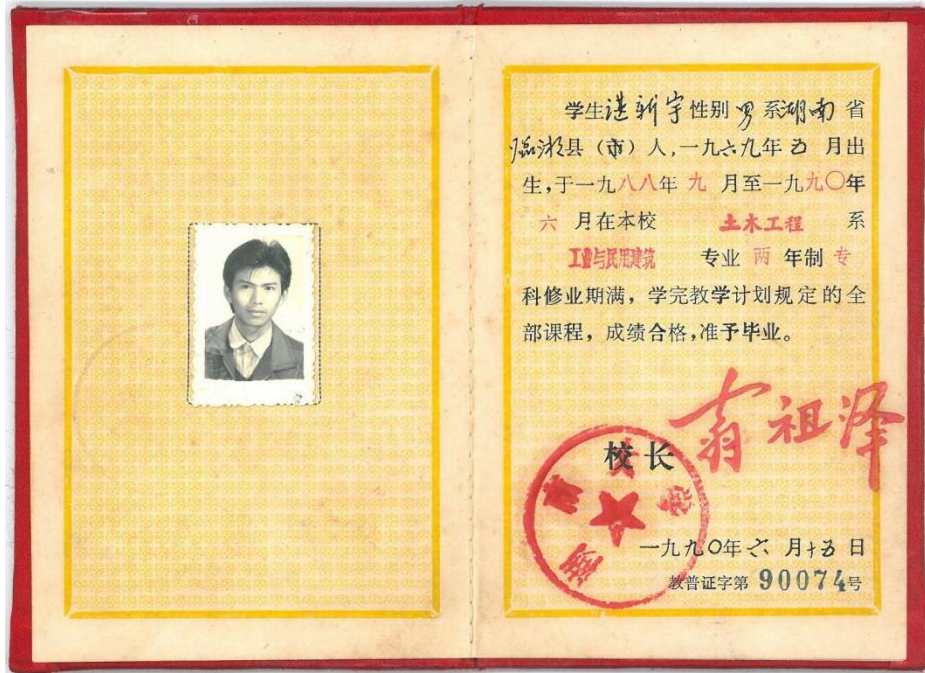 学生谌新宇性别男系湖南省
临湘县（市）人,一九六九年五月出
生,于一九八八年九月至一九九〇年
六月在本校土木工程系
工业与民用建筑专业两年制专
科修业期满，学完教学计划规定的全
部课程，成绩合格,准予毕业。
校长 翁祖泽
一九九〇年六月十五日
教普证字第90074号